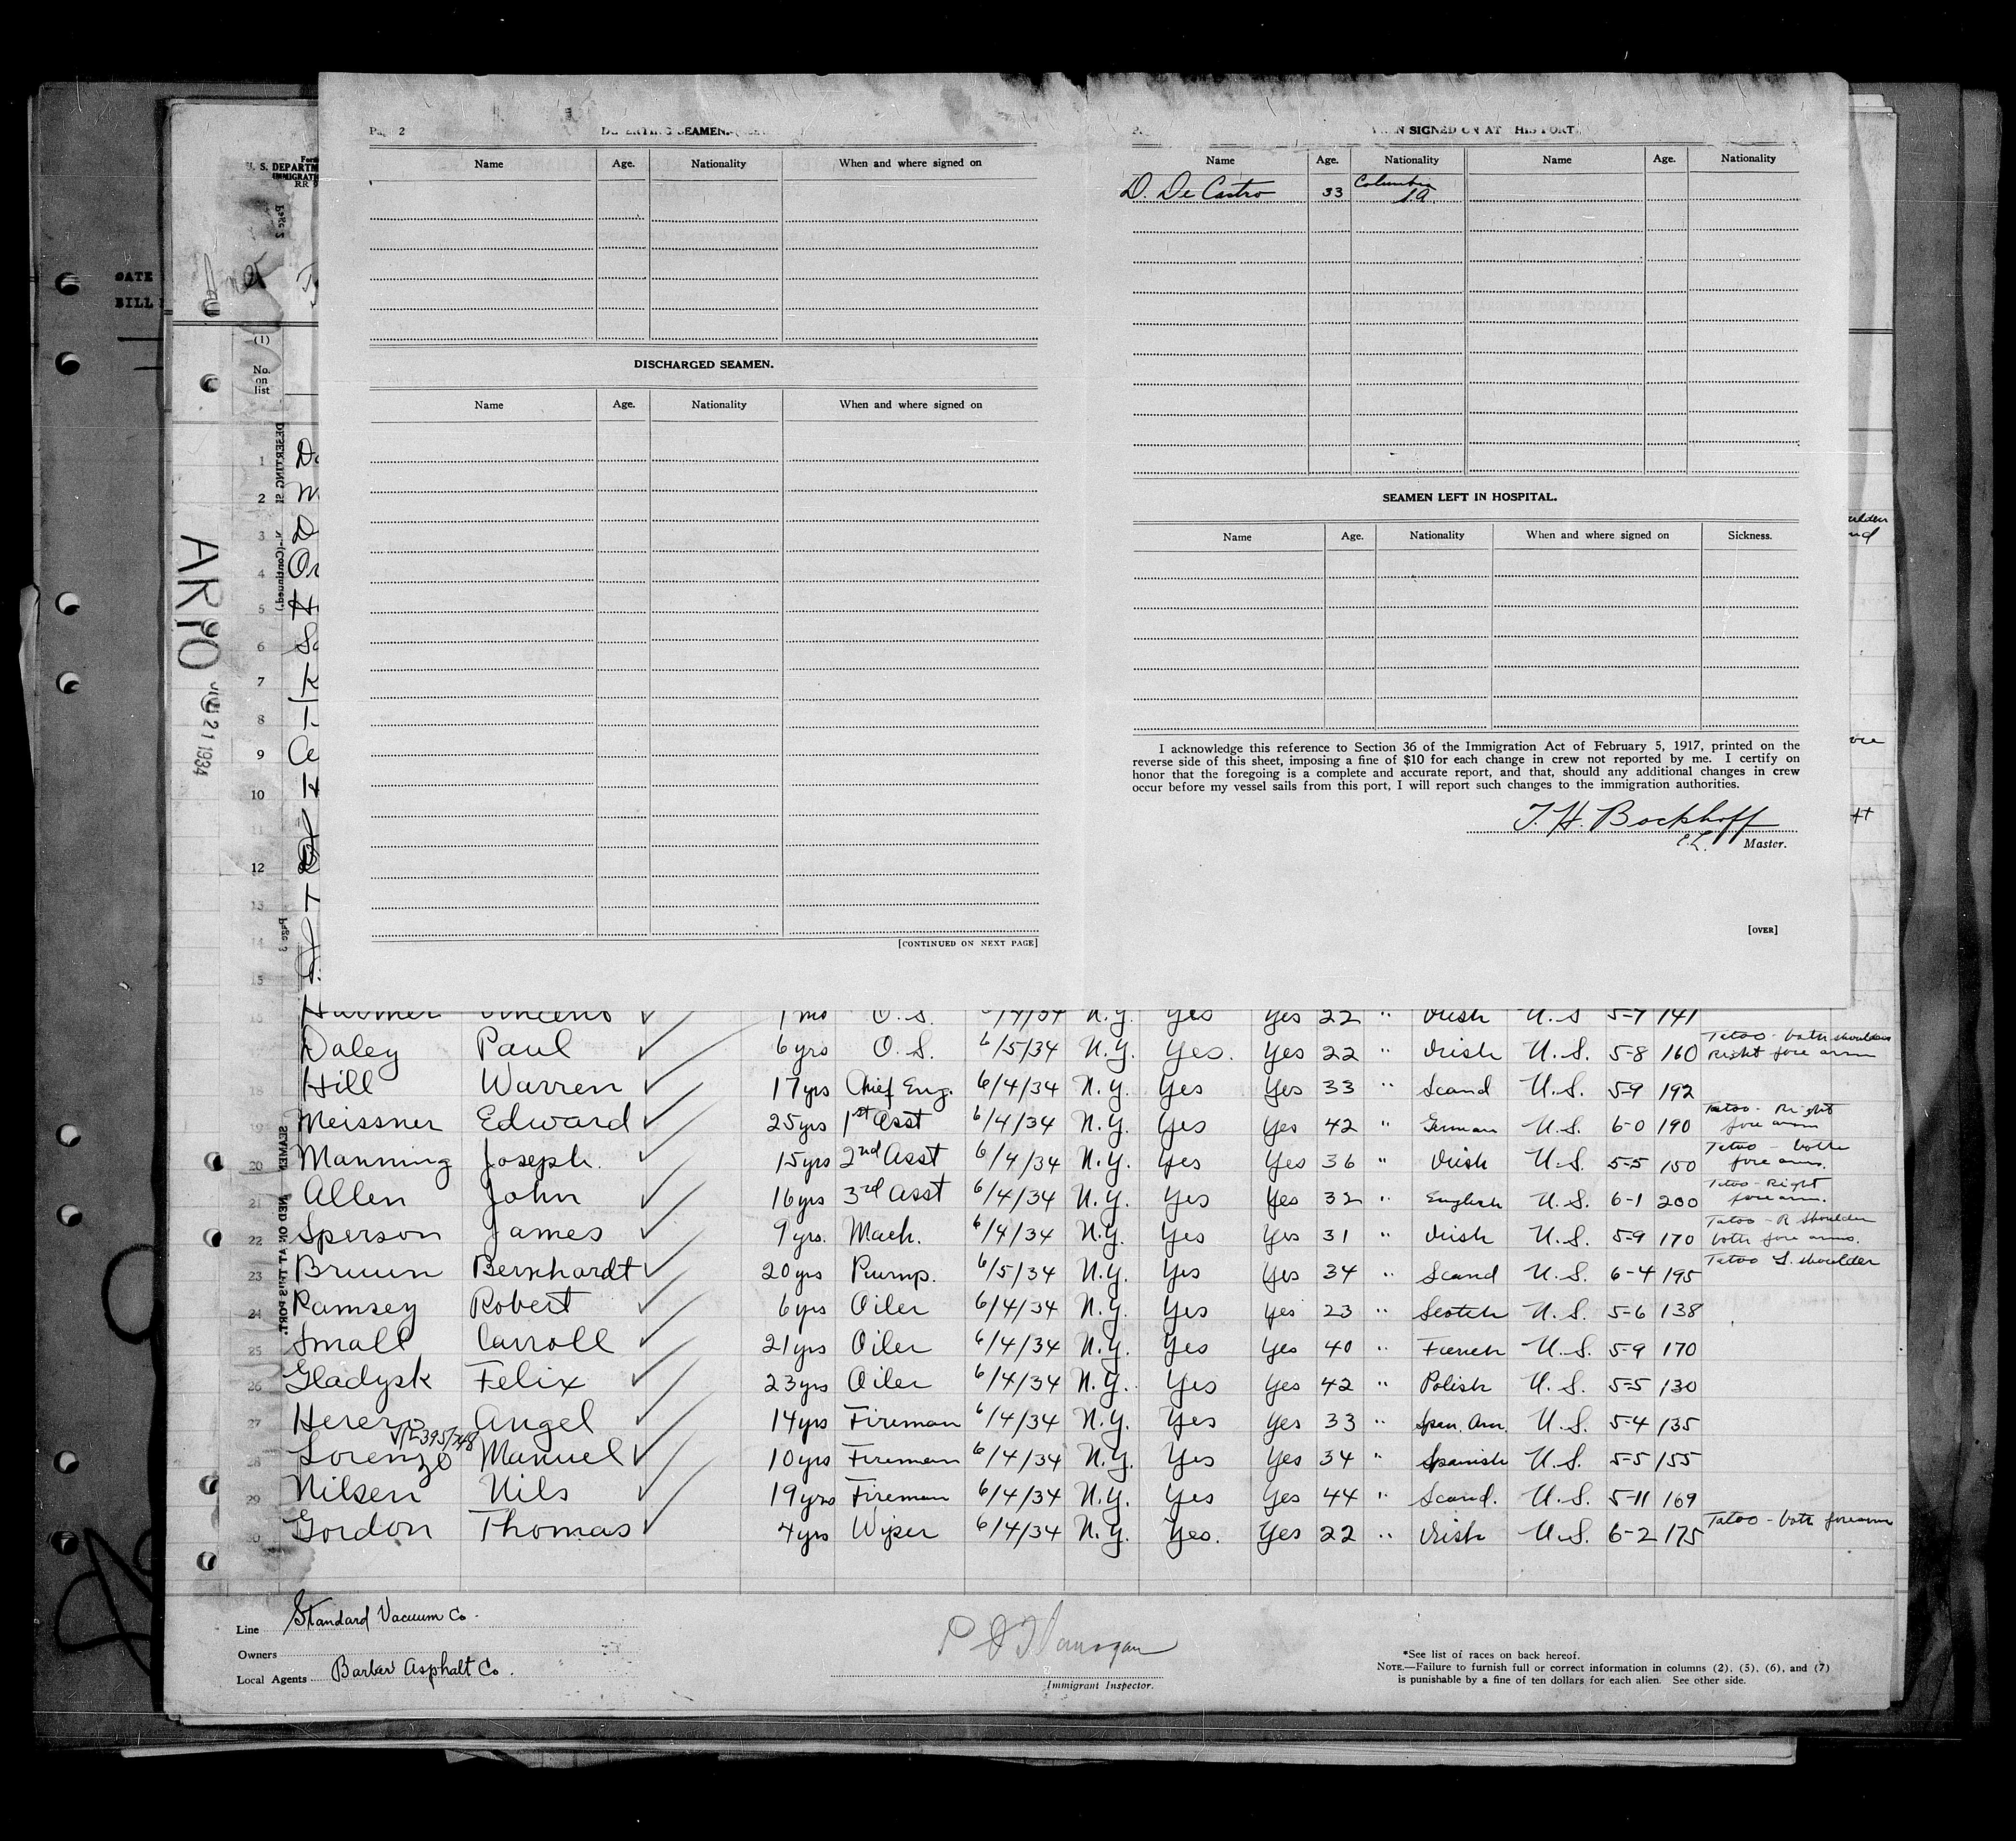 Name Age. Nationality When and where signed on
DISCHARGED SEAMEN.
Name Age. Nationality When and where signed on
[CONTINUED ON NEXT PAGE]
SIGNED ON AT HIS PORT
Name Age. Nationality Name Age. Nationality
D. De Castro 33 Columbia
SEAMEN LEFT IN HOSPITAL.
Name Age. Nationality When and where signed on Sickness.
I acknowledge this reference to Section 36 of the Immigration Act of February 5, 1917, printed on the
reverse side of this sheet, imposing a fine of $10 for each change in crew not reported by me. I certify on
honor that the foregoing is a complete and accurate report, and that, should any additional changes in crew
occur before my vessel sails from this port, I will report such changes to the immigration authorities.
T. H. Bockhoff
Master.
[OVER]
DATE
BILL
U. S. DEPARTM
IMMIGRAT
Page 2
(1)
No.
on
list
ARYO
21 1934
1
2
3
4
5
6
7
8
9
10
11
12
13
14
15
16 1 mo O. S. N.Y. Yes Yes 22 " Irish U.S 5-7 141
Daley Paul 6 yrs O. S. 6/5/34 N.Y. Yes. Yes 22 " Irish U.S. 5-8 160 Tatoo - both shoulders
Right fore arm
18 Hill Warren 17 yrs Chief Eng. 6/4/34 N.Y. Yes Yes 33 " Scand U.S. 5-9 192
19 Meissner Edward 25 yrs 1st Asst 6/4/34 N.Y. Yes Yes 42 " German U.S. 6-0 190 Tatoo - Right
fore arm
20 Manning Joseph. 15 yrs 2nd Asst 6/4/34 N.Y. Yes Yes 36 " Irish U.S. 5-5 150 Tatoo - both
fore arms.
21 Allen John 16 yrs 3rd Asst 6/4/34 N.Y. Yes Yes 32 " English U.S. 6-1 200 Tatoo - Right
fore arm.
22 Sperson James 9 yrs. Mach. 6/4/34 N.Y. Yes Yes 31 " Irish U.S. 5-9 170 Tatoo - R Shoulder
both fore arms.
23 Bruun Bernhardt 20 yrs Pump. 6/5/34 N.Y. Yes Yes 34 " Scand U.S. 6-4 195 Tatoo L. shoulder
24 Ramsey Robert 6 yrs Oiler 6/4/34 N.Y. Yes Yes 23 " Scotch U.S. 5-6 138
25 Small Carroll 21 yrs Oiler 6/4/34 N.Y. Yes Yes 40 " French U.S. 5-9 170
26 Gladysk Felix 23 yrs Oiler 6/4/34 N.Y. Yes Yes 42 " Polish U.S. 5-5 130
27 Herero Angel 14 yrs Fireman 6/4/34 N.Y. Yes Yes 33 " Span. Am. U.S. 5-4 135
28 Lorenzo Manuel 10 yrs Fireman 6/4/34 N.Y. Yes Yes 34 " Spanish U.S. 5-5 155
29 Nilsen Nils 19 yrs Fireman 6/4/34 N.Y. Yes Yes 44 " Scand. U.S. 5-11 169
30 Gordon Thomas 4 yrs Wiper 6/4/34 N.Y. Yes. Yes 22 " Irish U.S. 6-2 175 Tatoo - both forearms
Line Standard Vacuum Co.
Owners
Local Agents Barber Asphalt Co.
Immigrant Inspector.
*See list of races on back hereof.
NOTE.—Failure to furnish full or correct information in columns (2), (5), (6), and (7)
is punishable by a fine of ten dollars for each alien. See other side.